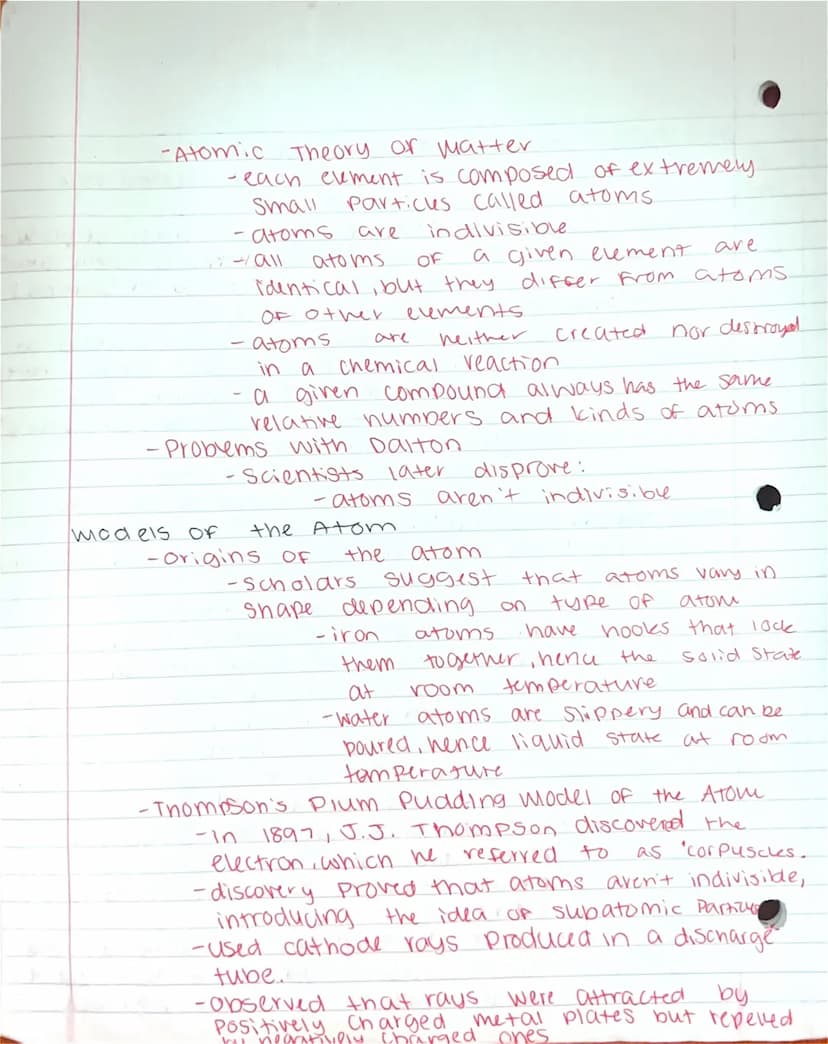 - Atomic Theory of Matter
- each element is composed of extremely
small particles called atoms
- atoms are indivisible
- all atoms of a given element are
identical, but they differ from atoms
of other elements
- atoms are neither created nor destroyed
in a chemical reaction
- a given compound always has the same
relative numbers and kinds of atoms
- Problems with Dalton
- Scientists later disprove:
- atoms aren't indivisible
Models of the Atom
- Origins of the atom
- Scholars suggest that atoms vary in
shape depending on type of atom
- iron atoms have hooks that lock
them together, hence the solid state
at room temperature
- water atoms are slippery and can be
poured, hence liquid state at room
temperature
- Thompson's Plum Pudding Model of the Atom
- In 1897, J.J. Thompson discovered the
electron, which he referred to as 'corpuscles.
- discovery proved that atoms aren't indivisible,
introducing the idea of subatomic particles
- used cathode rays produced in a discharge
tube.
- observed that rays were attracted by
positively charged metal plates but repelled
by negatively charged ones